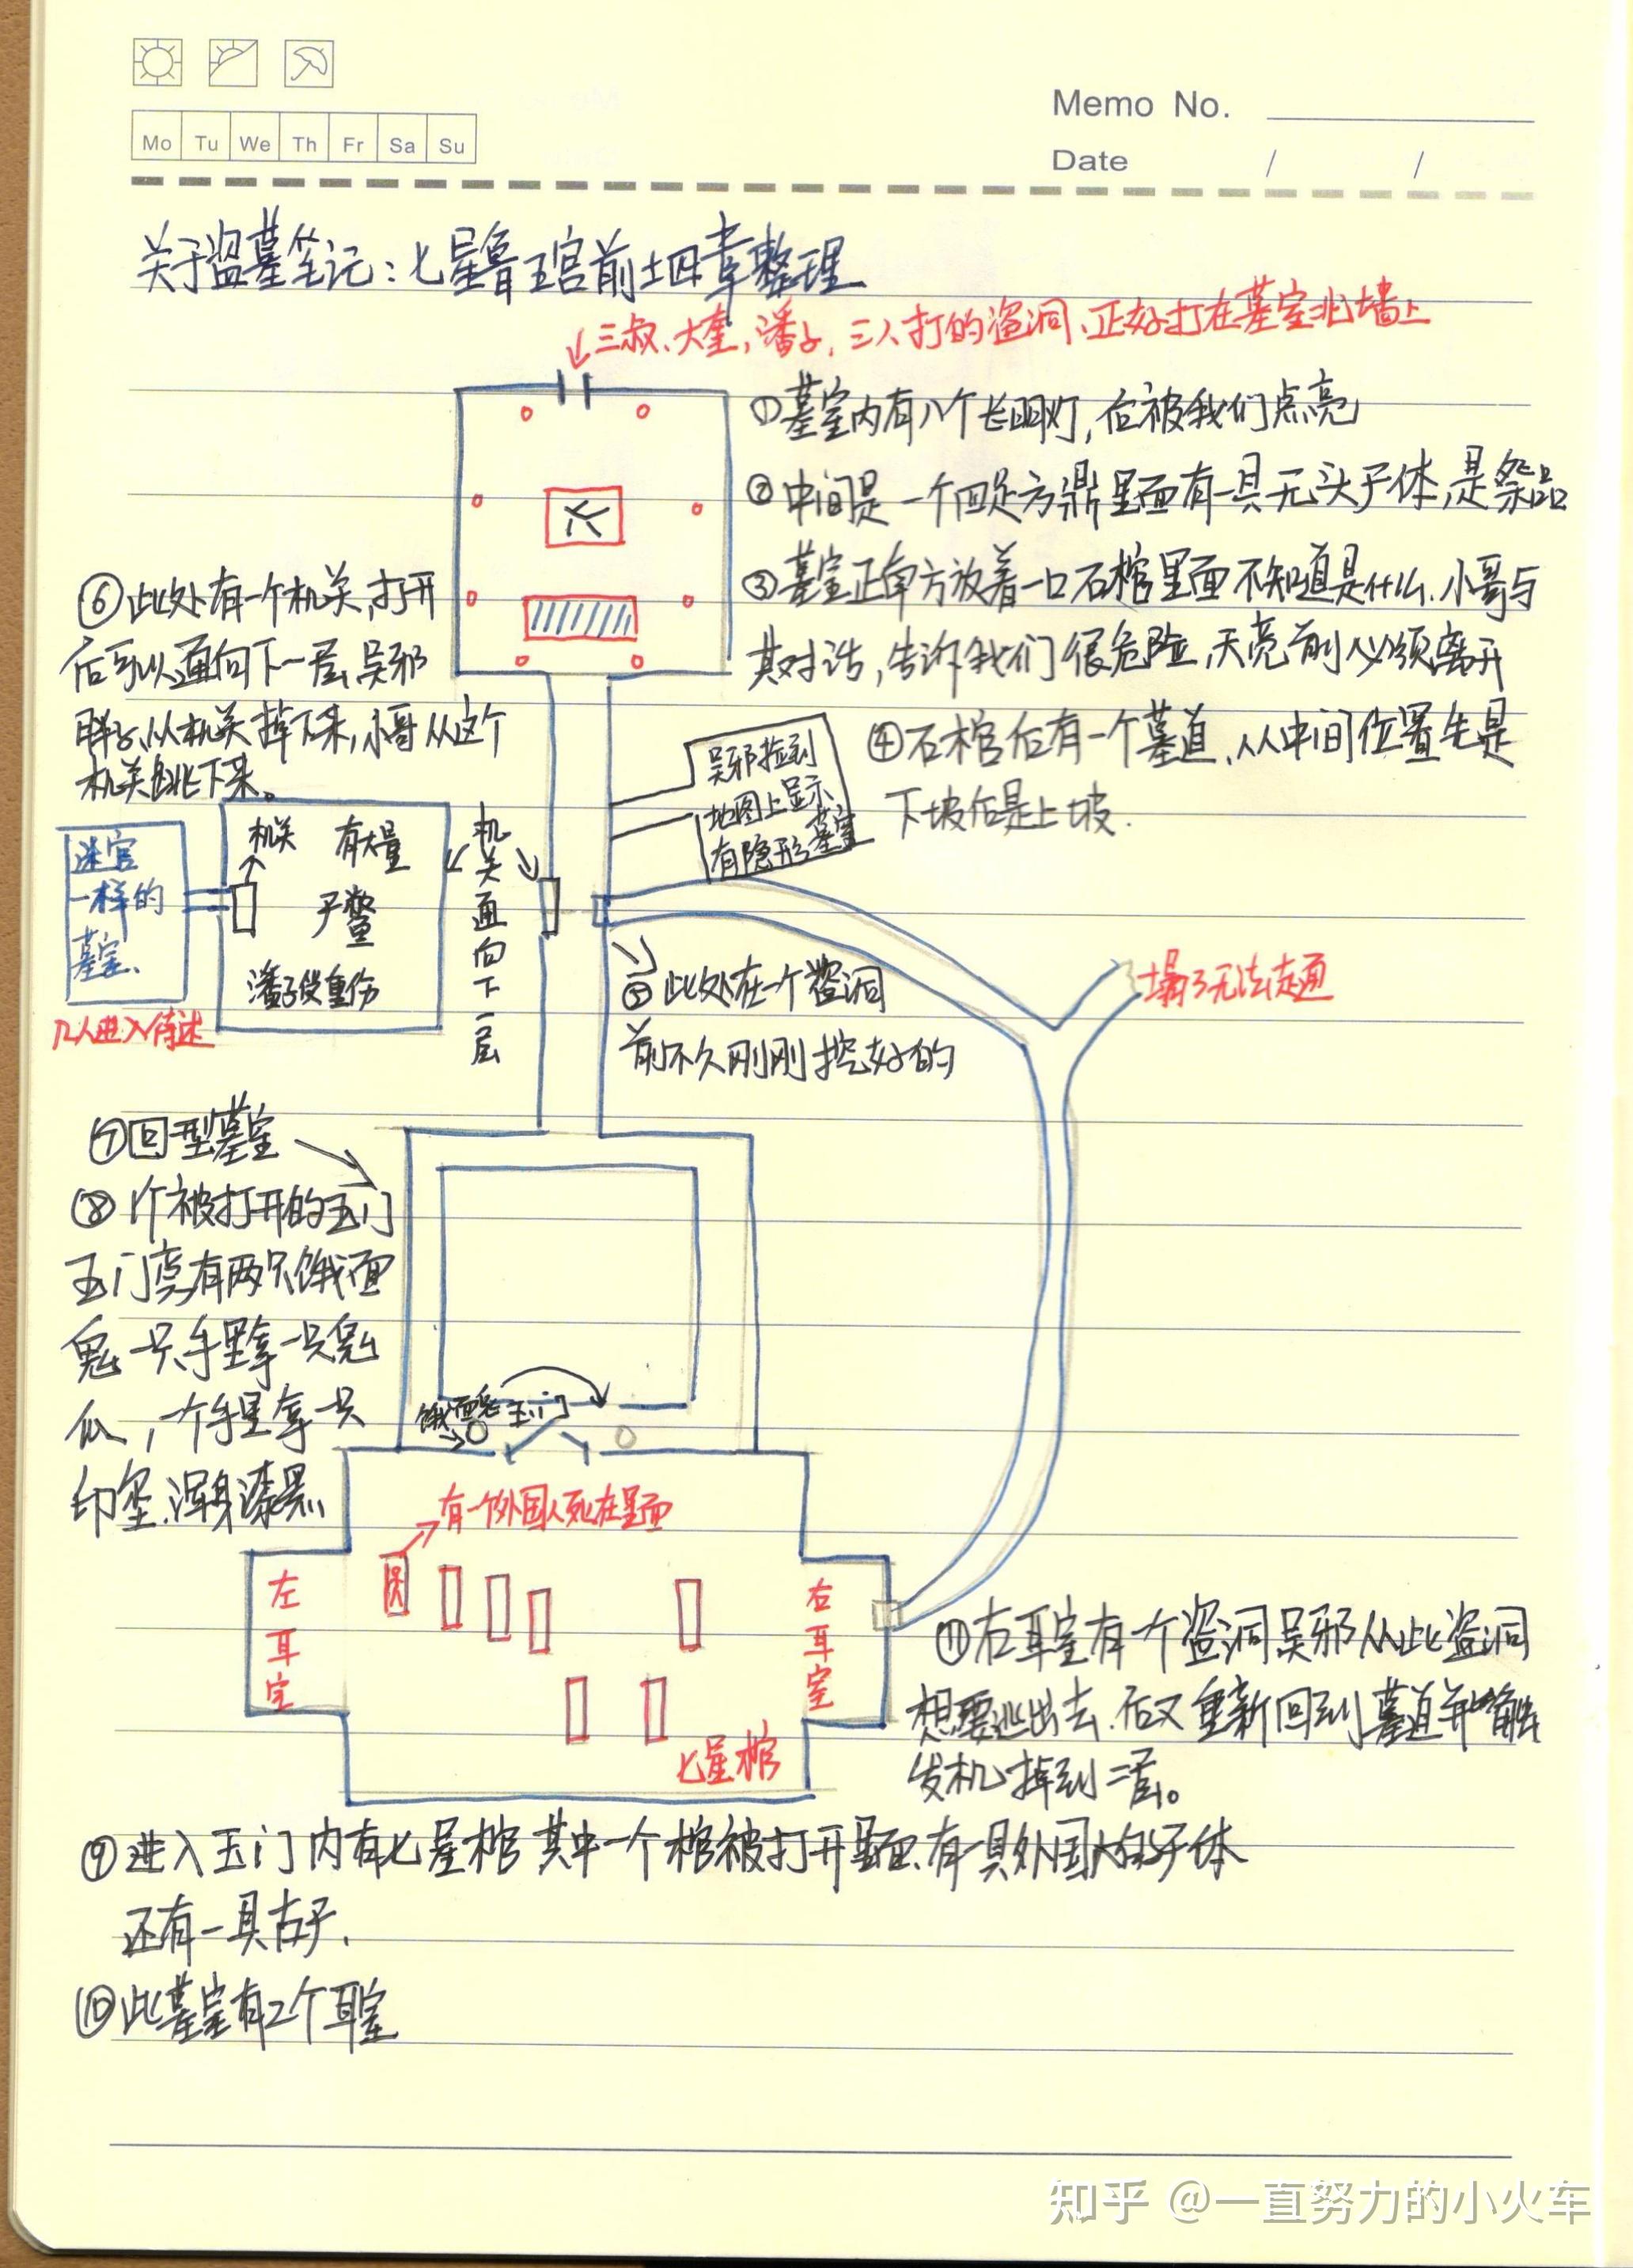 Memo No.
Mo Tu We Th Fr Sa Su
Date / /
关于盗墓笔记:七星鲁王宫前十四章整理
三叔、大奎,潘子,三人打的盗洞、正好打在墓室北墙上
①墓室内有八个长明灯,后被我们点亮
②中间是一个四足方鼎里面有一具无头尸体,是祭品
③墓室正南方放着一口石棺里面不知道是什么.小哥与
其对话,告诉我们很危险,天亮前必须离开
④石棺后有一个墓道,从中间位置先是
下坡后是上坡.
⑥此处有一个机关,打开
后可以通向下一层,吴邪
胖子从机关掉下来,小哥从这个
机关跳下来。
吴邪捡到
地图上显示
有隐形墓室
迷宫
一样的
墓室、
机关
有大量
尸鳖
潘子受重伤
几人进入待述
机关通向下一层
⑤此处在一个盗洞
前不久刚刚挖好的
塌了无法走通
⑦回型墓室
⑧1个被打开的玉门
玉门旁有两只饿面
鬼一只手里拿一只鬼
爪,一个手里拿一只
印玺.浑身漆黑
饿面鬼
玉门
有一个外国人死在里面
左耳室
右耳室
七星棺
⑪右耳室有一个盗洞吴邪从此盗洞
想要逃出去.后又重新回到墓道并触
发机掉到二层。
⑨进入玉门内有七星棺其中一个棺被打开里面有一具外国人的尸体
还有一具古尸.
⑩此墓室有2个耳室
知乎 @一直努力的小火车